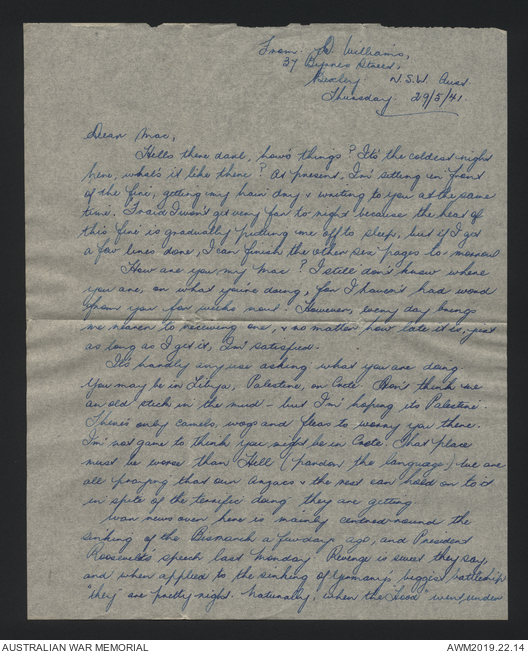 From: D. Williams,
37 Byrnes Street,
Bexley N.S.W. Aust.
Thursday 29/5/41.
Dear Mac,
Hello there darl, how's things? It's the coldest night
here, what's it like there? At present, I'm sitting in front
of the fire, getting my hair dry & writing to you at the same
time. Afraid I won't get very far to-night because the heat of
this fire is gradually putting me off to sleep, but if I get
a few lines done, I can finish the other six pages to-morrow
How are you my Mac? I still don't know where
you are, or what you're doing, for I haven't had word
from you for weeks now. However, every day brings
me nearer to receiving one, & no matter how late it is, just
as long as I get it, I'm satisfied.
It's hardly any use asking what you are doing.
You may be in Libya, Palestine, or Crete. Don't think me
an old stick in the mud - but I'm hoping its Palestine.
There's only camels, wogs and fleas to worry you there.
I'm not game to think you might be in Crete. That place
must be worse than Hell (pardon the language) but we are
all praying that our Anzacs & the rest can hold on to it
in spite of the terrific doing they are getting
War news over here is mainly centred round the
sinking of the Bismarck a few days ago, and President
Roosevelt's speech last Monday. Revenge is sweet they say,
and when applied to the sinking of Germany's biggest battleship
"they" are pretty right. Naturally, when the "Hood" went under
AUSTRALIAN WAR MEMORIAL
AWM2019.22.14